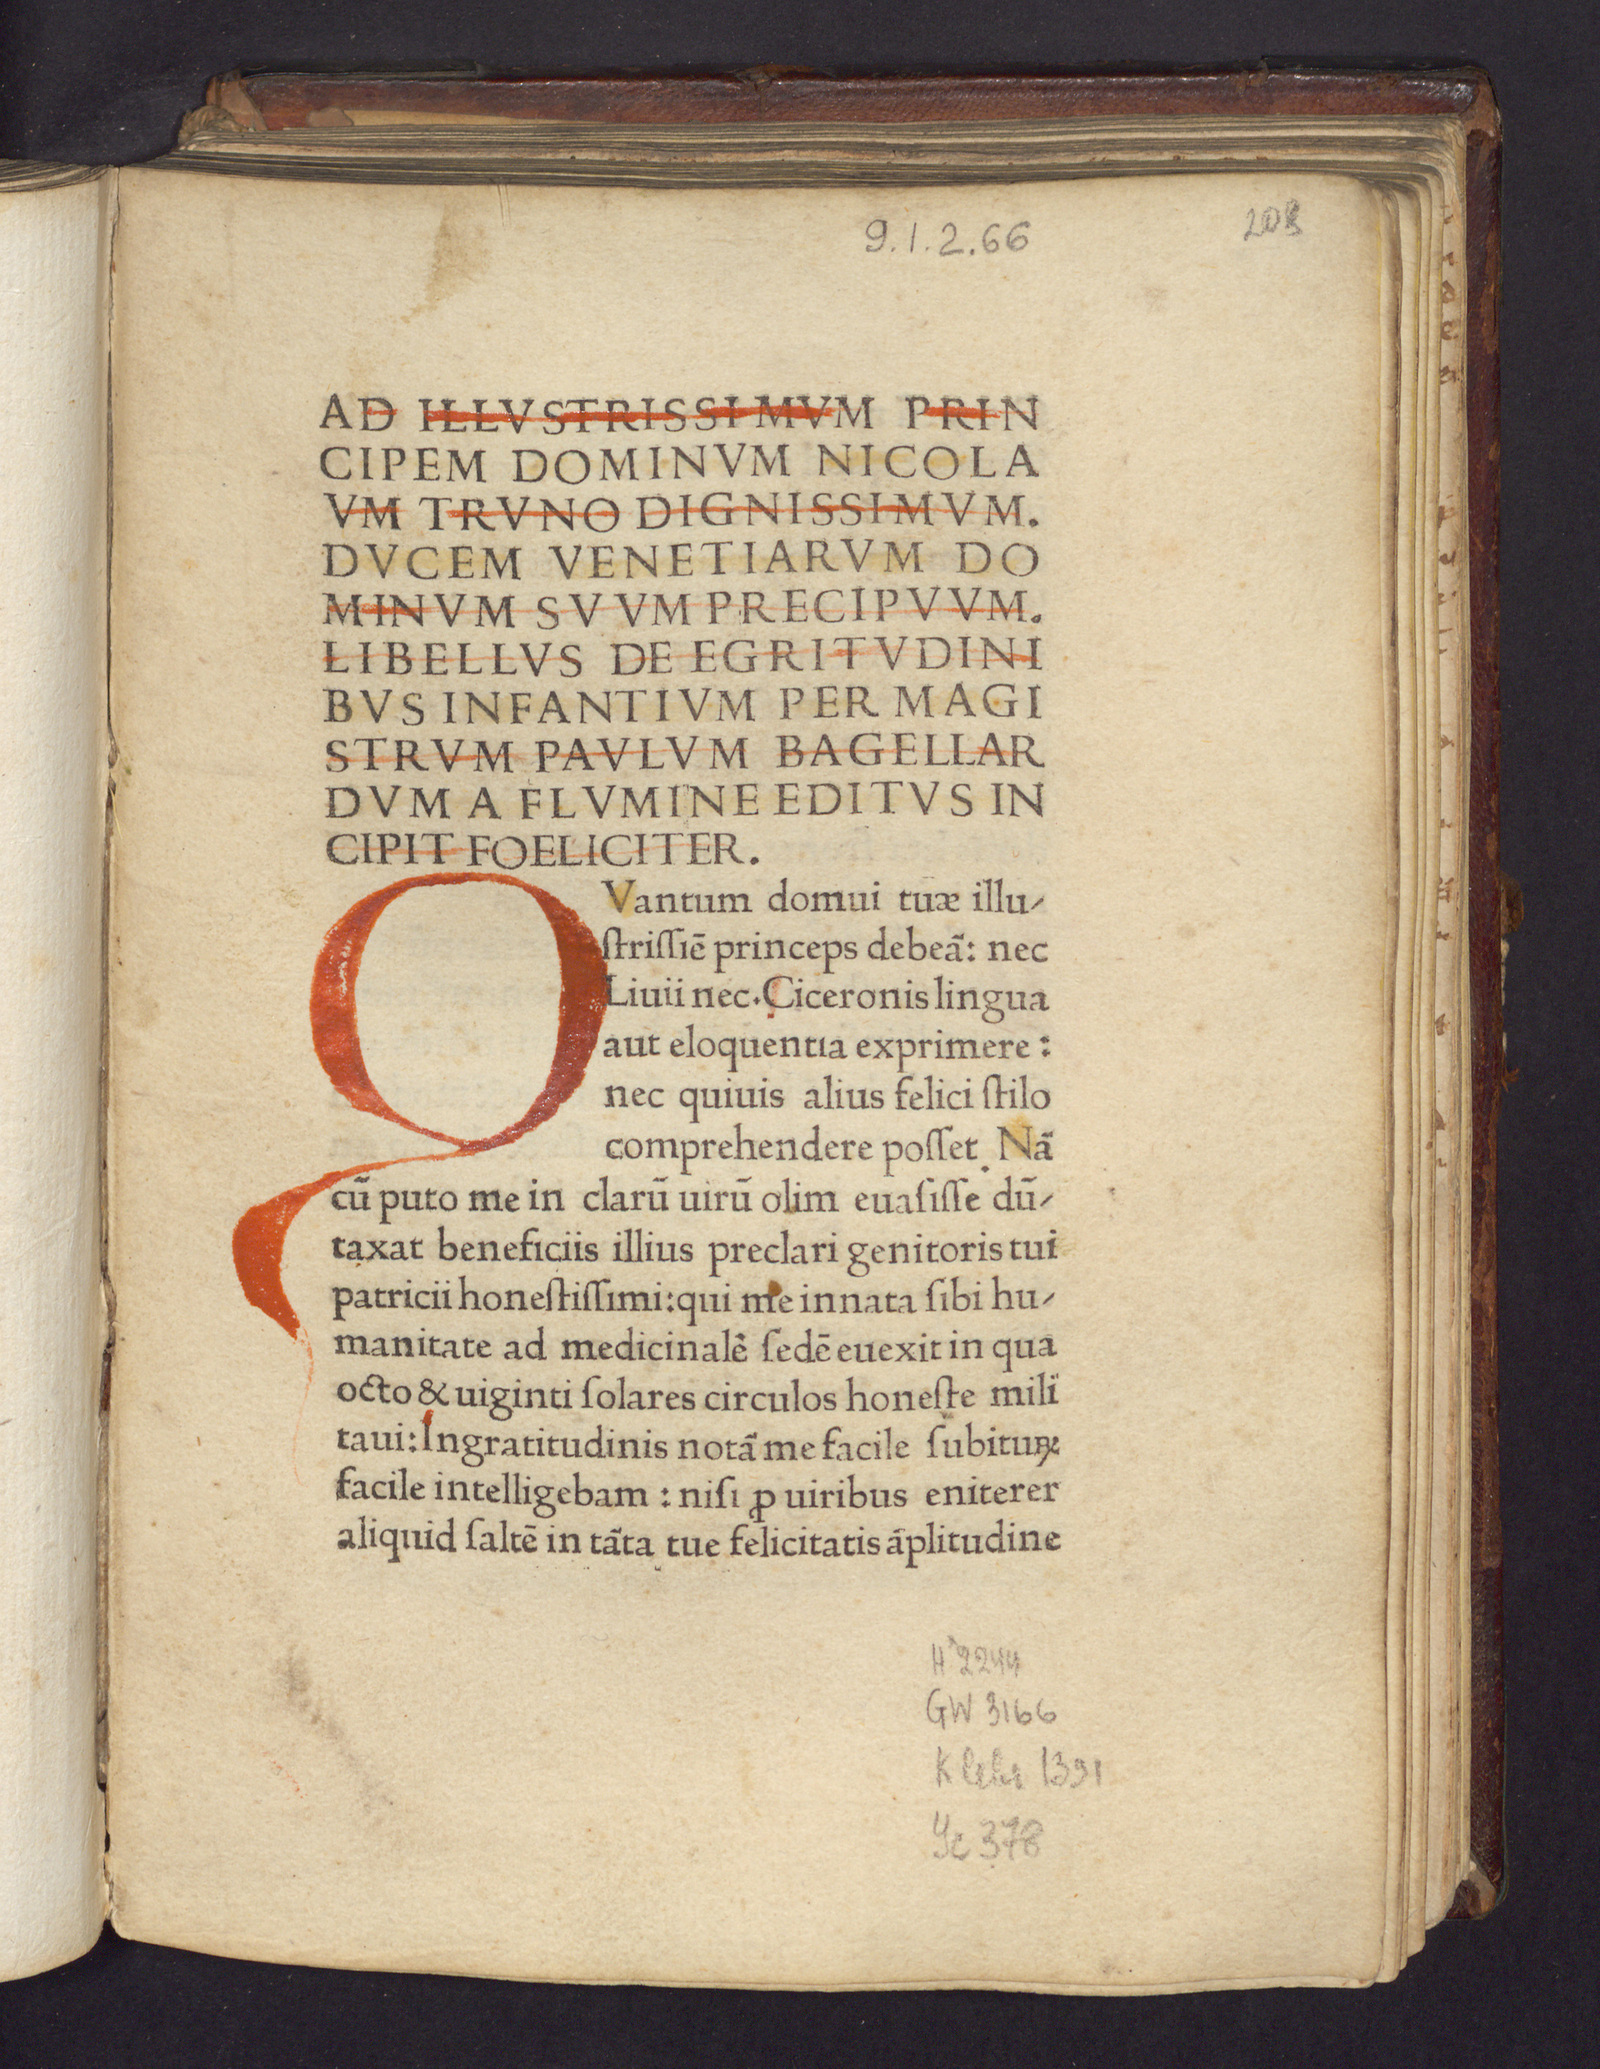 9.1.2.66
208
AD ILLVSTRISSIMVM PRIN
CIPEM DOMINVM NICOLA
VM TRVNO DIGNISSIMVM.
DVCEM VENETIARVM DO
MINVM SVVM PRECIPVVM.
LIBELLVS DE EGRITVDINI
BVS INFANTIVM PER MAGI
STRVM PAVLVM BAGELLAR
DVM A FLVMINE EDITVS IN
CIPIT FOELICITER.
QVantum domui tuæ illu⸗
ſtriſſiē princeps debeā: nec
Liuii nec.Ciceronis lingua
aut eloquentia exprimere :
nec quiuis alius felici ſtilo
comprehendere poſſet. Nā
cū puto me in clarū uirū olim euaſiſſe dū⸗
taxat beneficiis illius preclari genitoris tui
patricii honeſtiſſimi:qui me innata ſibi hu⸗
manitate ad medicinalē ſedē euexit in qua
octo & uiginti ſolares circulos honeſte mili
taui:Ingratitudinis notā me facile ſubituꝝ
facile intelligebam : niſi ꝓ uiribus eniterer
aliquid ſaltē in tāta tue felicitatis āplitudine
H 2244
GW 3166
Klebs 1391
378